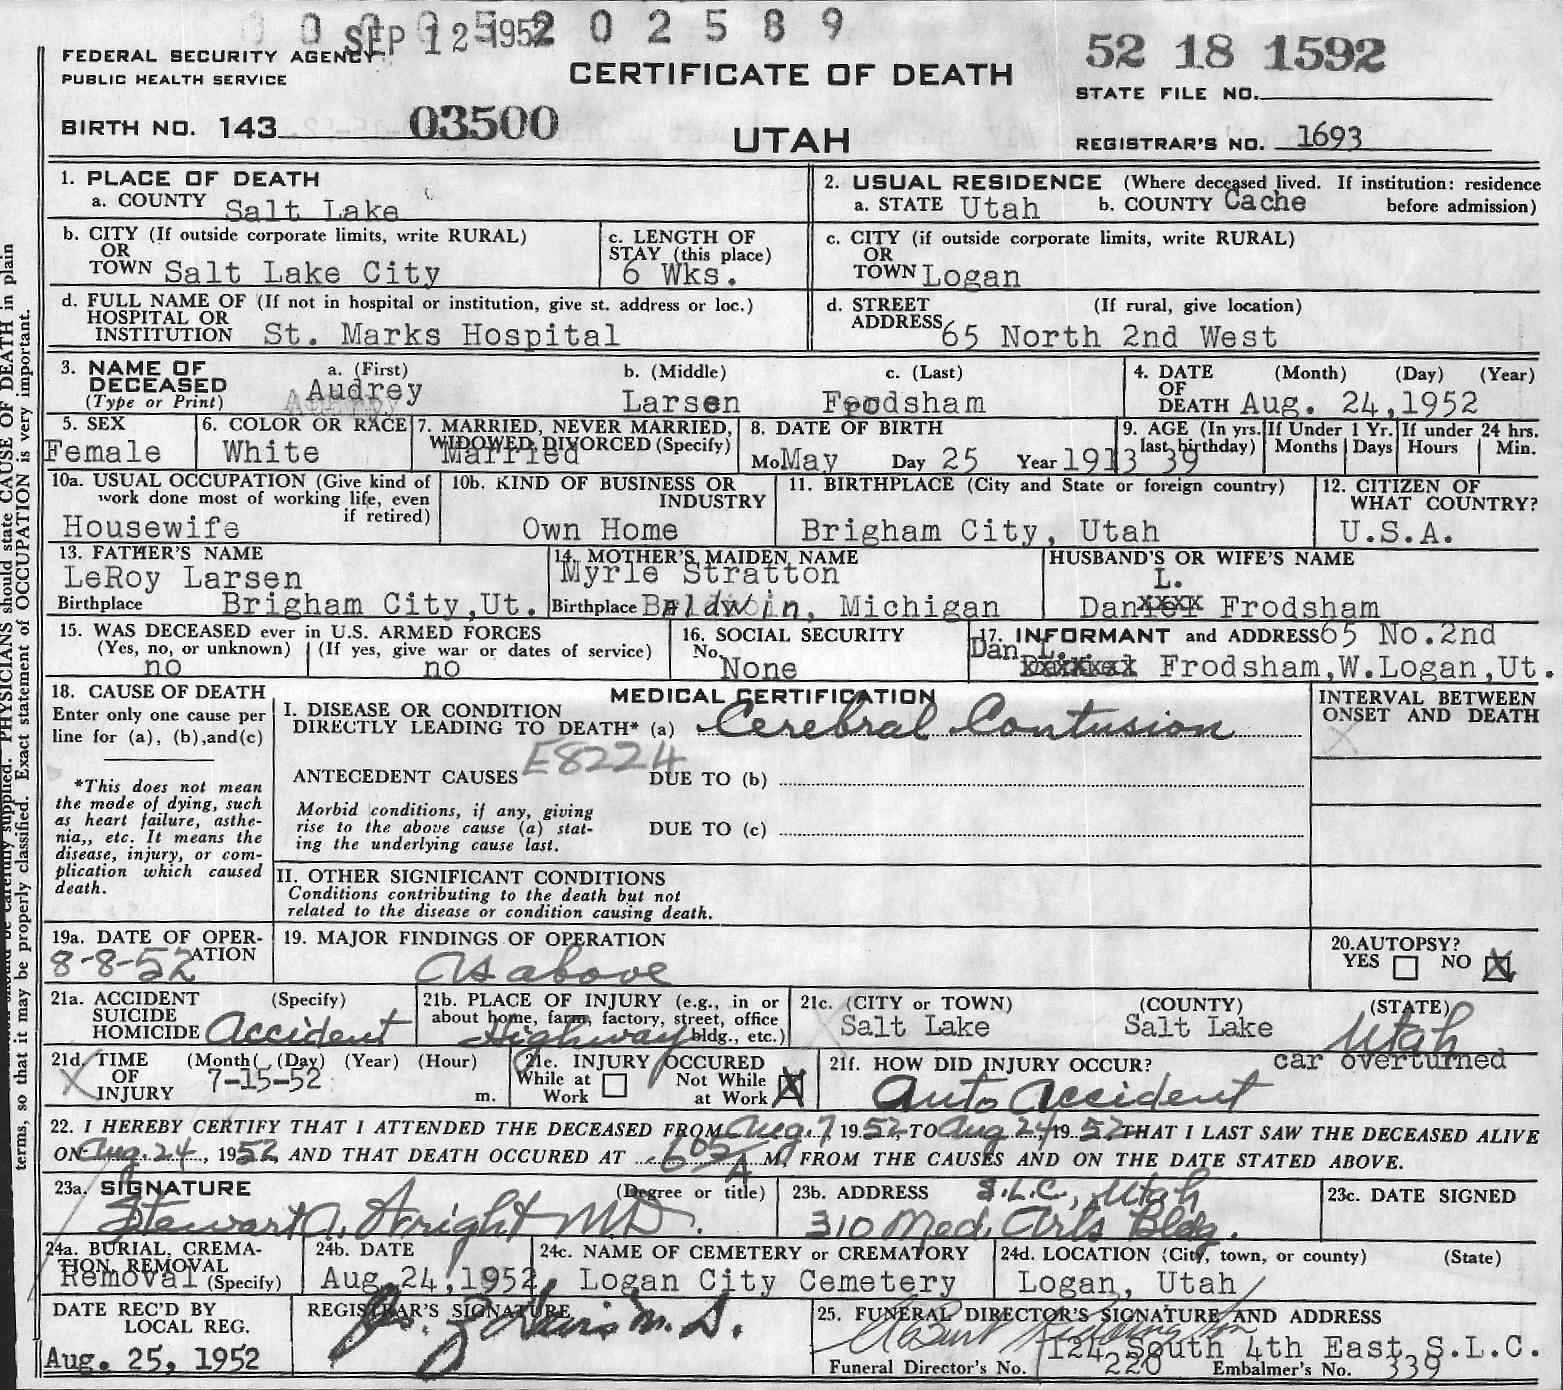 0 0 0 0 5 2 0 2 5 8 9
SEP 12 1952
52 18 1592
FEDERAL SECURITY AGENCY
PUBLIC HEALTH SERVICE
CERTIFICATE OF DEATH
STATE FILE NO.
BIRTH NO. 143 03500
UTAH
REGISTRAR'S NO. 1693
1. PLACE OF DEATH
a. COUNTY Salt Lake
2. USUAL RESIDENCE (Where deceased lived. If institution: residence
a. STATE Utah b. COUNTY Cache before admission)
b. CITY (If outside corporate limits, write RURAL)
OR
TOWN Salt Lake City
c. LENGTH OF
STAY (this place)
6 Wks.
c. CITY (if outside corporate limits, write RURAL)
OR
TOWN Logan
d. FULL NAME OF (If not in hospital or institution, give st. address or loc.)
HOSPITAL OR
INSTITUTION St. Marks Hospital
d. STREET (If rural, give location)
ADDRESS 65 North 2nd West
3. NAME OF
DECEASED
(Type or Print)
a. (First)
Audrey
b. (Middle)
Larsen
c. (Last)
Frodsham
4. DATE (Month) (Day) (Year)
OF
DEATH Aug. 24,1952
5. SEX
Female
6. COLOR OR RACE
White
7. MARRIED, NEVER MARRIED,
WIDOWED, DIVORCED (Specify)
Married
8. DATE OF BIRTH
Mo May Day 25 Year 1913
9. AGE (In yrs. last birthday)
39
If Under 1 Yr.
Months Days
If under 24 hrs.
Hours Min.
10a. USUAL OCCUPATION (Give kind of
work done most of working life, even
if retired)
Housewife
10b. KIND OF BUSINESS OR
INDUSTRY
Own Home
11. BIRTHPLACE (City and State or foreign country)
Brigham City, Utah
12. CITIZEN OF
WHAT COUNTRY?
U.S.A.
13. FATHER'S NAME
LeRoy Larsen
Birthplace Brigham City,Ut.
14. MOTHER'S MAIDEN NAME
Myrle Stratton
Birthplace Baldwin, Michigan
HUSBAND'S OR WIFE'S NAME
L.
Daniel Frodsham
15. WAS DECEASED ever in U.S. ARMED FORCES
(Yes, no, or unknown) (If yes, give war or dates of service)
no no
16. SOCIAL SECURITY
No. None
17. INFORMANT and ADDRESS 65 No.2nd
Dan L.
xxxxxx Frodsham,W.Logan,Ut.
18. CAUSE OF DEATH
Enter only one cause per
line for (a), (b),and(c)
*This does not mean
the mode of dying, such
as heart failure, asthe-
nia,, etc. It means the
disease, injury, or com-
plication which caused
death.
MEDICAL CERTIFICATION
I. DISEASE OR CONDITION
DIRECTLY LEADING TO DEATH* (a) Cerebral Contusion
E8224
ANTECEDENT CAUSES DUE TO (b)
Morbid conditions, if any, giving
rise to the above cause (a) stat-
ing the underlying cause last.
DUE TO (c)
II. OTHER SIGNIFICANT CONDITIONS
Conditions contributing to the death but not
related to the disease or condition causing death.
INTERVAL BETWEEN
ONSET AND DEATH
X
19a. DATE OF OPER-
ATION
8-8-52
19. MAJOR FINDINGS OF OPERATION
As above
20.AUTOPSY?
YES NO X
21a. ACCIDENT (Specify)
SUICIDE
HOMICIDE Accident
21b. PLACE OF INJURY (e.g., in or
about home, farm, factory, street, office
bldg., etc.)
Highway
21c. (CITY or TOWN) (COUNTY) (STATE)
Salt Lake Salt Lake Utah
21d. TIME (Month) (Day) (Year) (Hour)
OF
INJURY m.
7-15-52
21e. INJURY OCCURED
While at Work
Not While at Work X
21f. HOW DID INJURY OCCUR? car overturned
Auto Accident
22. I HEREBY CERTIFY THAT I ATTENDED THE DECEASED FROM Aug. 7, 1952, TO Aug 24, 1952 THAT I LAST SAW THE DECEASED ALIVE
ON Aug. 24, 1952, AND THAT DEATH OCCURED AT 605 A M, FROM THE CAUSES AND ON THE DATE STATED ABOVE.
23a. SIGNATURE (Degree or title)
Stewart A. Wright M.D.
23b. ADDRESS S.L.C., Utah
310 Med. Arts Bldg.
23c. DATE SIGNED
24a. BURIAL, CREMA-
TION, REMOVAL
Removal (Specify)
24b. DATE
Aug. 24, 1952
24c. NAME OF CEMETERY or CREMATORY
Logan City Cemetery
24d. LOCATION (City, town, or county) (State)
Logan, Utah
DATE REC'D BY
LOCAL REG.
Aug. 25, 1952
REGISTRAR'S SIGNATURE
M.D.
25. FUNERAL DIRECTOR'S SIGNATURE AND ADDRESS
124 South 4th East S.L.C.
Funeral Director's No. 220 Embalmer's No. 339
PHYSICIANS should state CAUSE OF DEATH in plain
terms, so that it may be properly classified. Exact statement of OCCUPATION is very important.